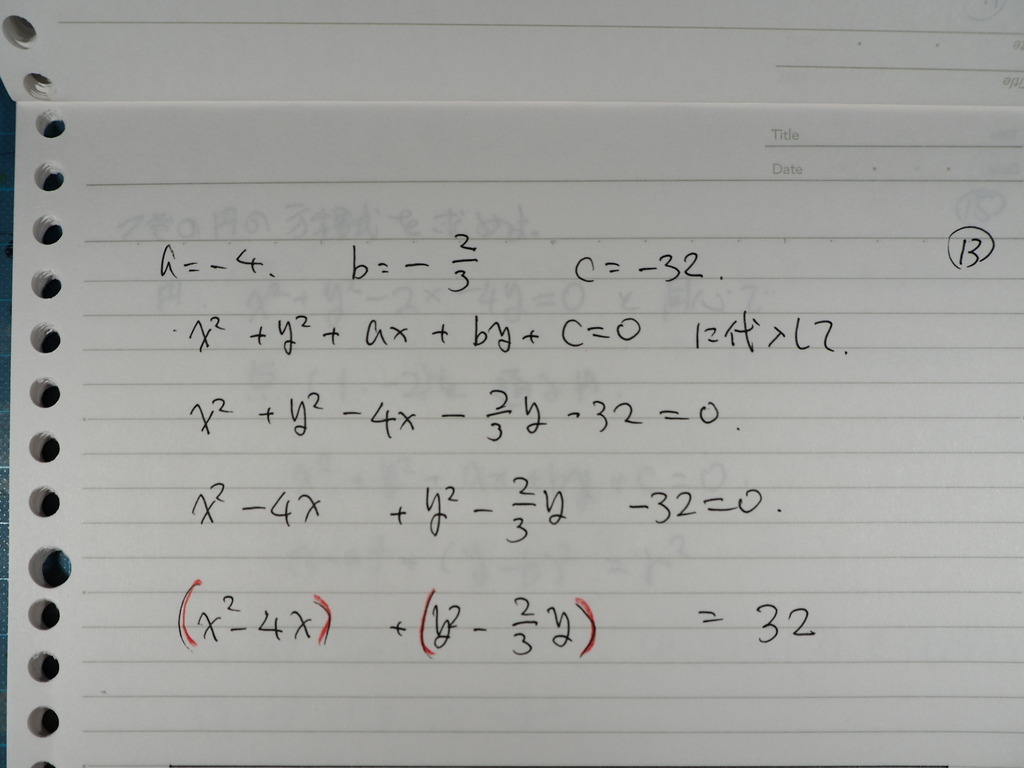 Title
Date
⑬
a = -4. b = - 2/3 c = -32.
・x² + y² + ax + by + c = 0 に代入して.
x² + y² - 4x - 2/3 y - 32 = 0.
x² - 4x + y² - 2/3 y - 32 = 0.
(x² - 4x) + (y² - 2/3 y) = 32